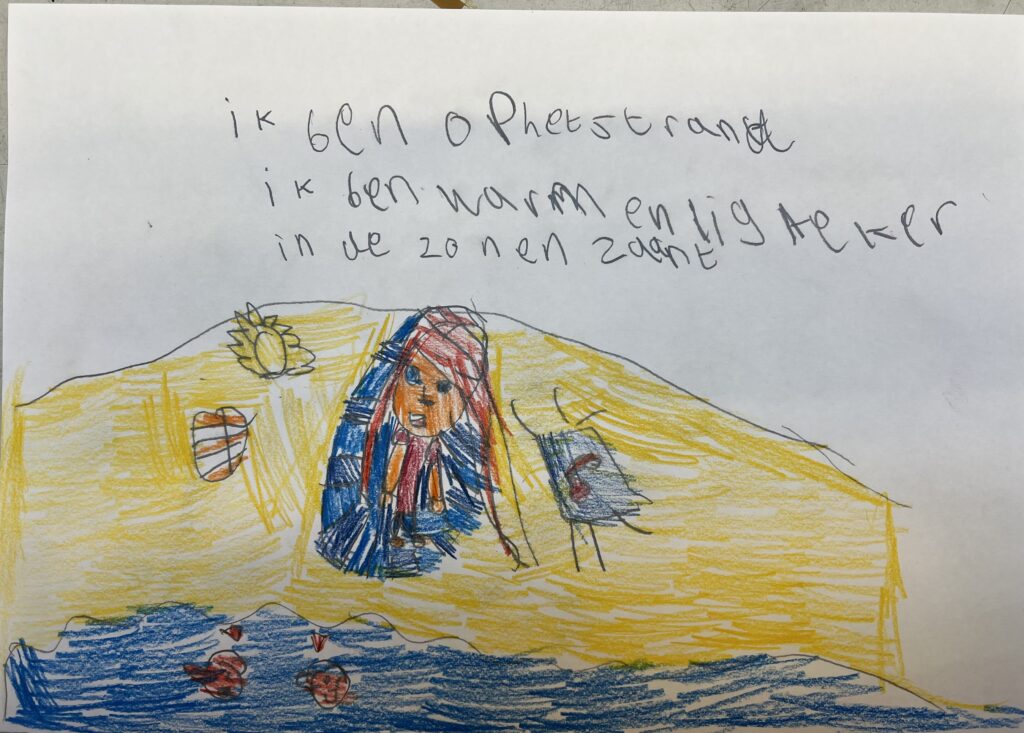 ik ben ophetstrand
ik ben warm en lig tekker
in de zonen zaant